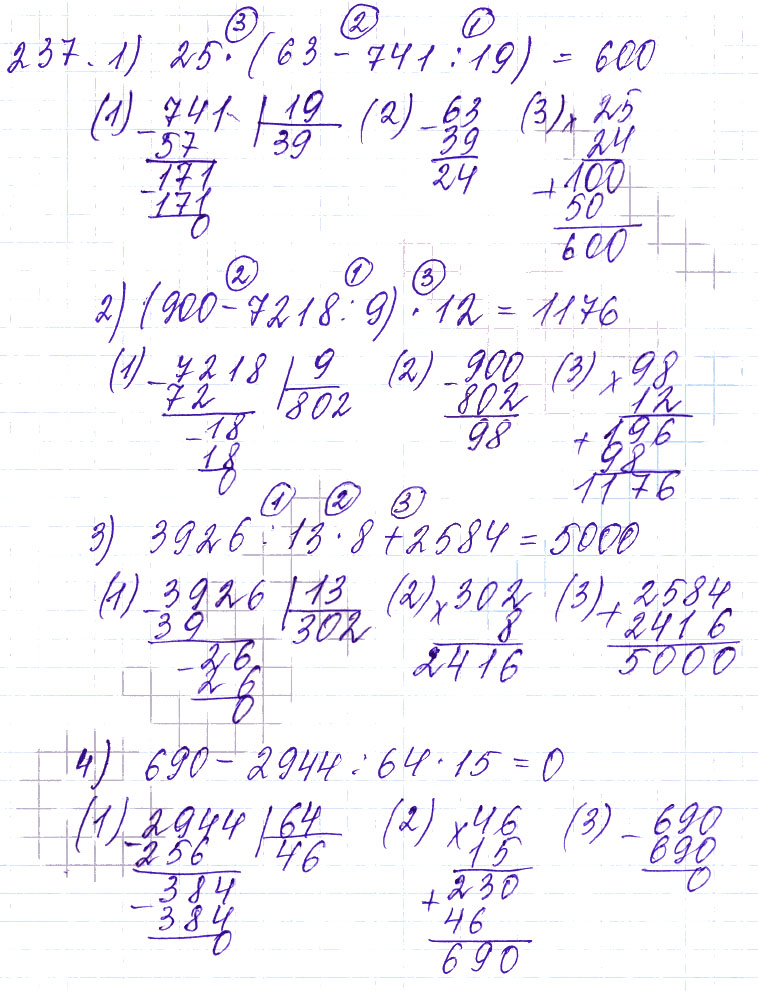 ③ ② ①
237. 1) 25 · (63 - 741 : 19) = 600
(1) - 741 | 19 (2) - 63 (3) × 25
57 39 39 24
171 24 + 100
- 171 50
0 600
② ① ③
2) (900 - 7218 : 9) · 12 = 1176
(1) - 7218 | 9 (2) - 900 (3) × 98
72 802 802 12
- 18 98 + 196
18 98
0 1176
① ② ③
3) 3926 : 13 · 8 + 2584 = 5000
(1) - 3926 | 13 (2) × 302 (3) + 2584
39 302 8 2416
- 26 2416 5000
26
0
4) 690 - 2944 : 64 · 15 = 0
(1) - 2944 | 64 (2) × 46 (3) - 690
256 46 15 690
- 384 + 230 0
384 46
0 690